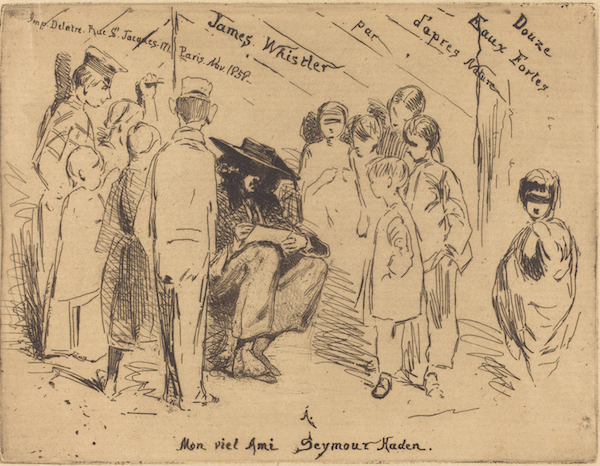 Imp. Delatre. Rue St. Jacques. 171. Paris. Nov 1858.
James. Whistler
par
Douze
Eaux Fortes
d'apres Nature
A.
Mon viel Ami Seymour Haden.